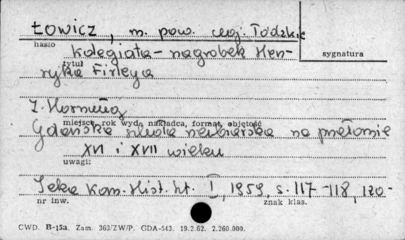 Łowicz, m. pow. woj. Łódzkie
hasło
Kolegiata - nagrobek Hen-
sygnatura
tytuł
ryka Firleya
J. Kornueg
miejsce, rok wyd., nakładca, format, objętość
Gdańska szkoła rzeźbiarska na przełomie
XVI i XVII wieku
uwagi:
Teka Kom. Hist. Szt. I, 1959, s. 117-118, 120-
nr inw.
znak klas.
CWD. B-15a. Zam. 363/ZW/P. GDA-543. 19.2.62. 2.260.000.